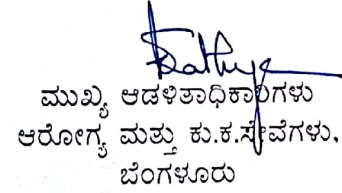 ಮುಖ್ಯ ಆಡಳಿತಾಧಿಕಾರಿಗಳು
ಆರೋಗ್ಯ ಮತ್ತು ಕು.ಕ.ಸೇವೆಗಳು,
ಬೆಂಗಳೂರು